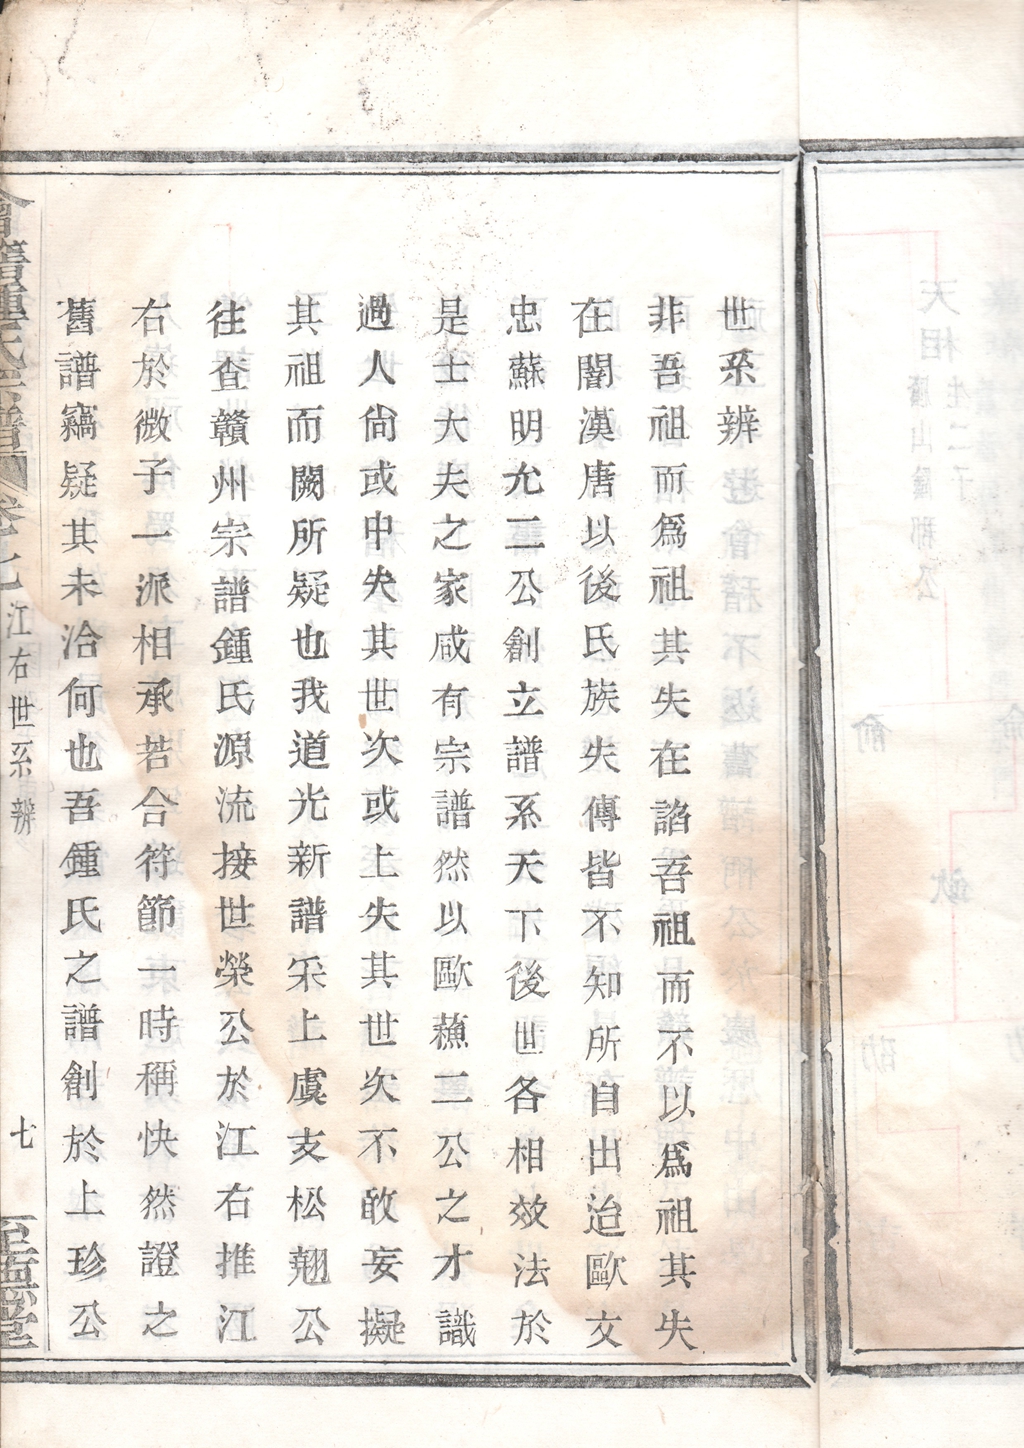 世系辨
非吾祖而爲祖其失在諂吾祖而不以爲祖其失
在闇漢唐以後氏族失傳皆不知所自出迨歐文
忠蘇明允二公創立譜系天下後世各相效法於
是士大夫之家咸有宗譜然以歐蘓二公之才識
過人尙或中失其世次或上失其世次不敢妄擬
其祖而闕所疑也我道光新譜采上虞支松翹公
往查贛州宗譜鍾氏源流接世榮公於江右推江
右於微子一派相承若合符節一時稱快然證之
舊譜竊疑其未洽何也吾鍾氏之譜創於上珍公
會稽鍾氏宗譜 卷七 江右世系辨 七
天相